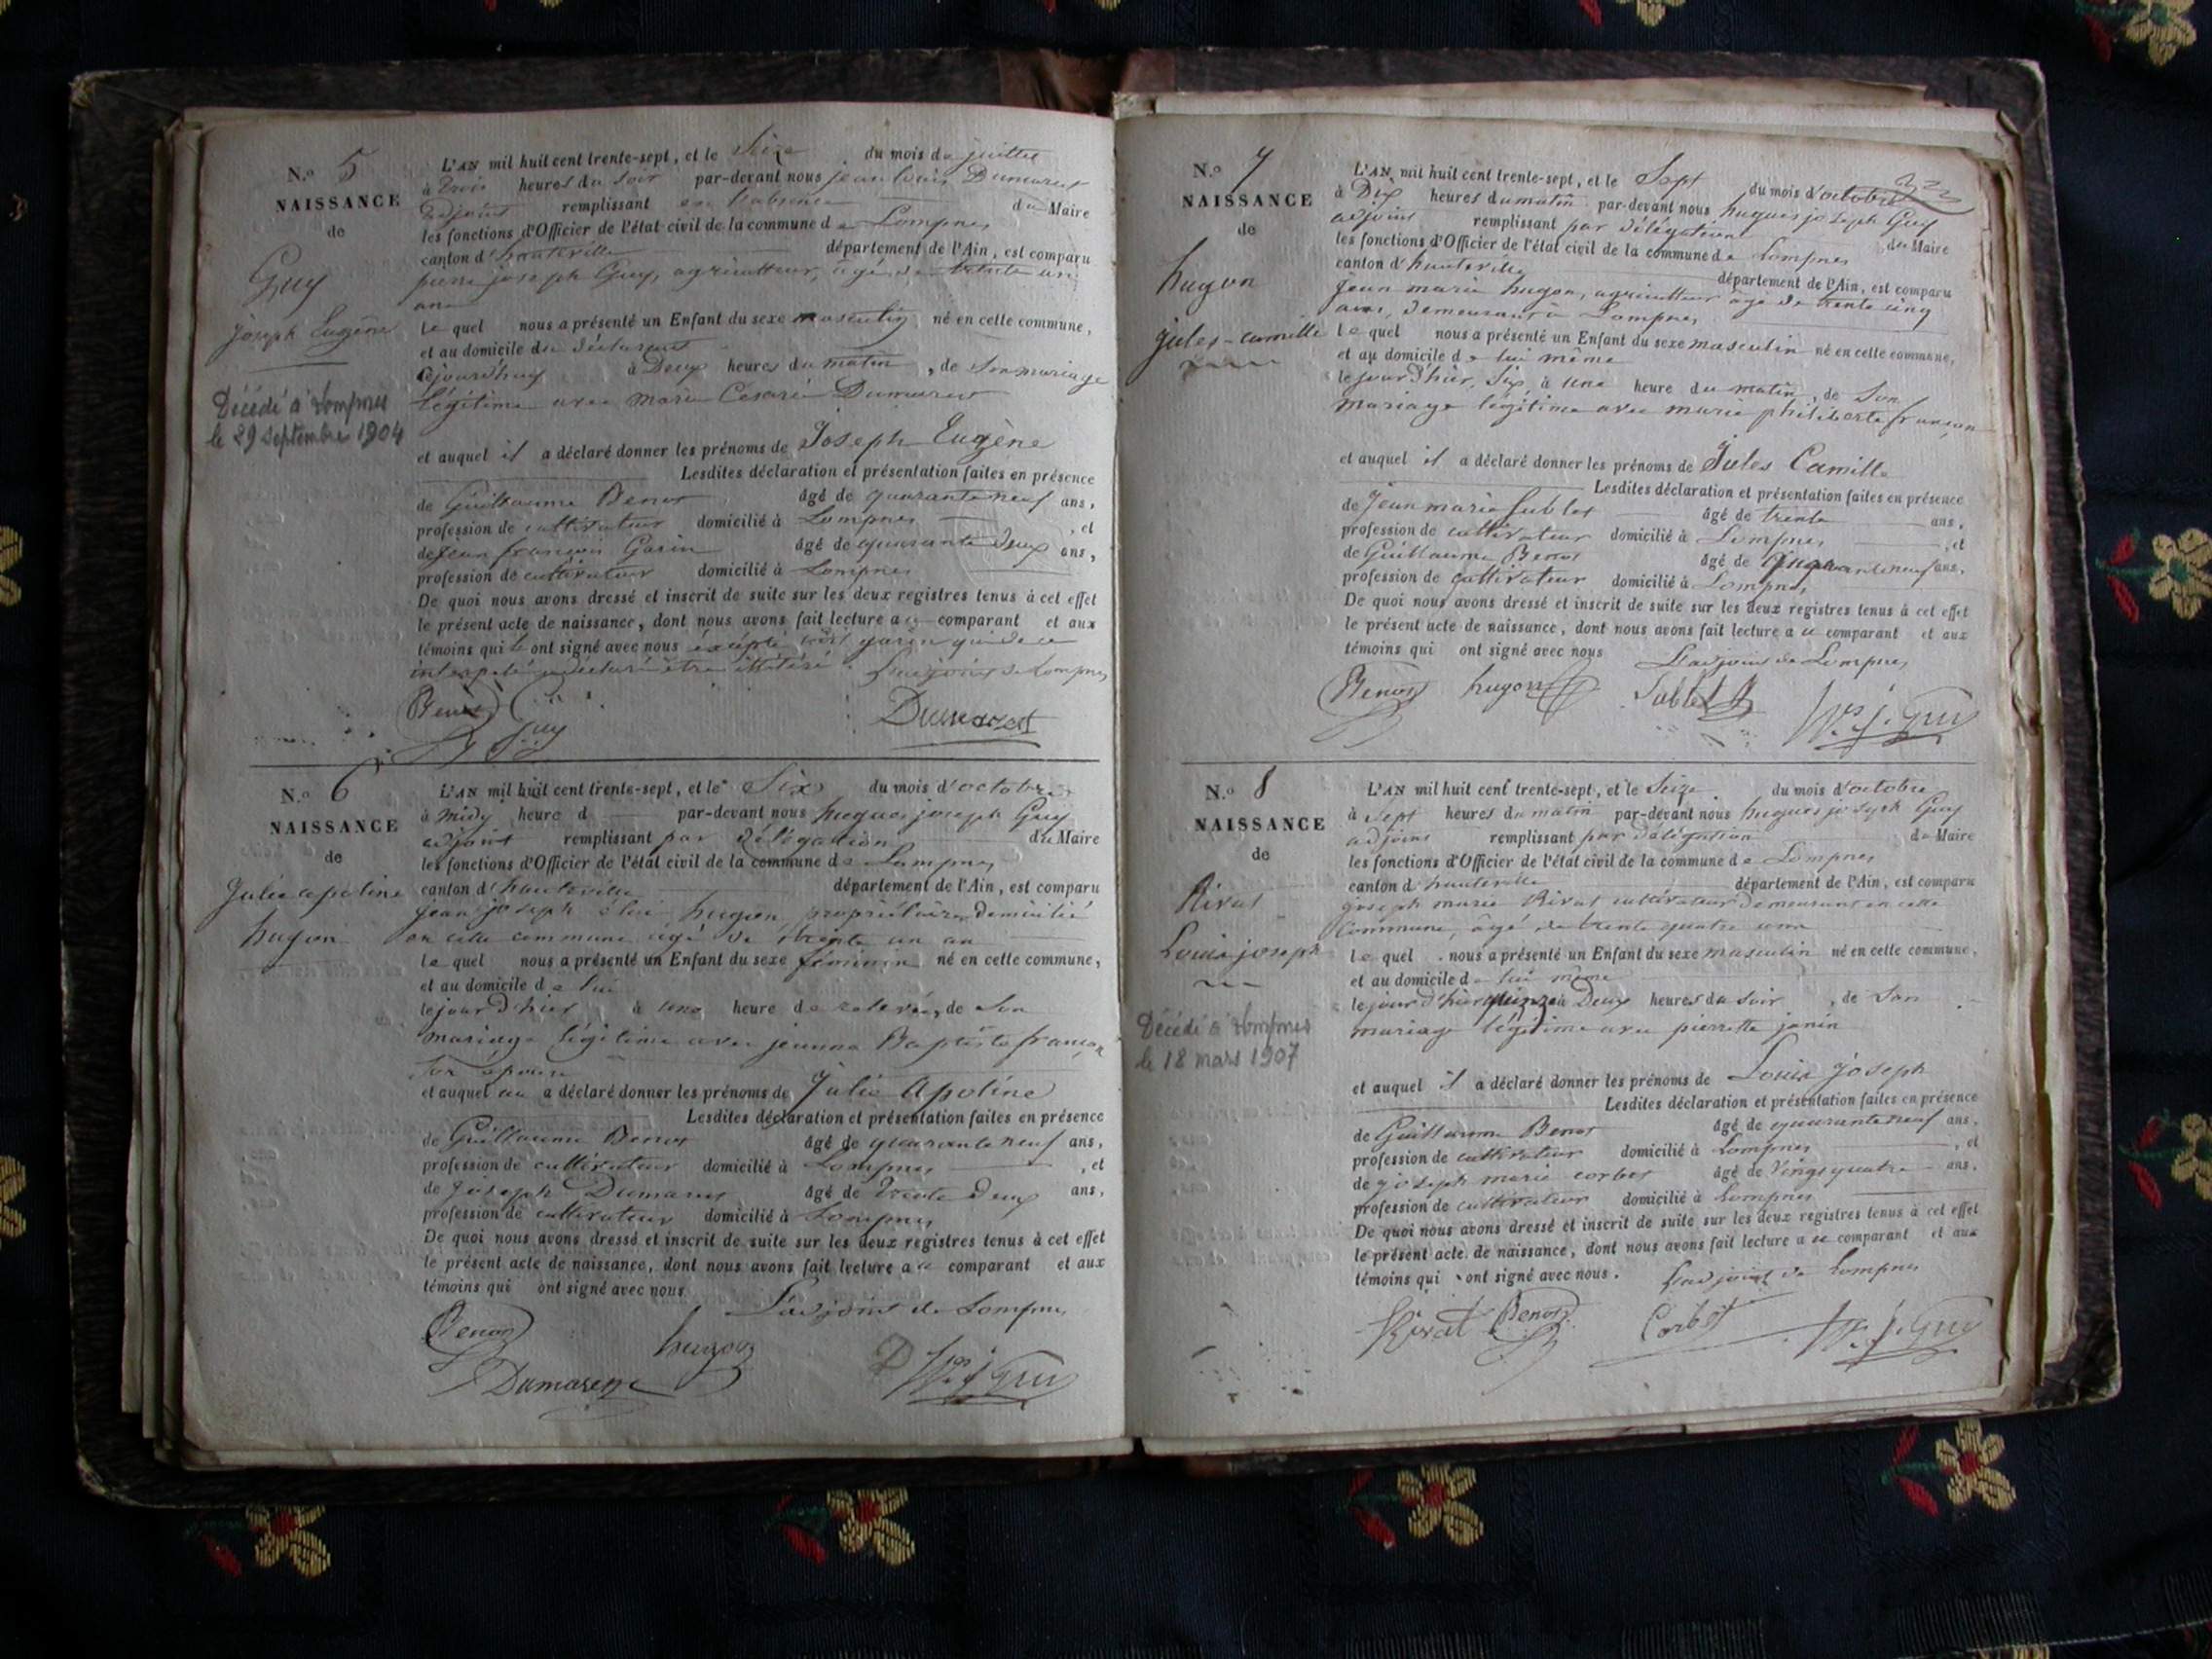 N.o 5
NAISSANCE
de
Guy
Joseph Eugène
Décédé à Lompnes
le 29 septembre 1904
L'AN mil huit cent trente-sept, et le Seize du mois de juillet
à trois heures du soir par-devant nous jean louis Dumarest
adjoint remplissant en l'absence du Maire
les fonctions d'Officier de l'état civil de la commune de Lompnes
canton d'hauteville département de l'Ain, est comparu
pierre joseph Guy, agriculteur, agé de trente un
ans
lequel nous a présenté un Enfant du sexe masculin né en cette commune,
et au domicile du déclarant
cejourd'huy à Deux heures du matin, de son mariage
légitime avec marie Césarie Dumarest
et auquel il a déclaré donner les prénoms de Joseph Eugène
Lesdites déclaration et présentation faites en présence
de Guillaume Benot âgé de quarante neuf ans,
profession de cultivateur domicilié à Lompnes, et
de jean françois Garin âgé de quarante deux ans,
profession de cultivateur domicilié à Lompnes
De quoi nous avons dressé et inscrit de suite sur les deux registres tenus à cet effet
le présent acte de naissance, dont nous avons fait lecture a ce comparant et aux
témoins qui ont signé avec nous excepté garin qui de ce
interpelé a déclaré être illitéré L'adjoint de Lompnes
Benot Guy Dumarest
N.o 6
NAISSANCE
de
Julie apoline
hugon
L'AN mil huit cent trente-sept, et le Six du mois d'octobre
à midy heure d par-devant nous hugues joseph Guy
adjoint remplissant par délégation du Maire
les fonctions d'Officier de l'état civil de la commune de Lompnes
canton d'hauteville département de l'Ain, est comparu
jean joseph éloi hugon, propriétaire domicilié
en cette commune agé de trente un an
lequel nous a présenté un Enfant du sexe féminin né en cette commune,
et au domicile de lui
le jour d'hier à une heure de relevée, de son
mariage légitime avec jeanne Baptiste françon
son épouse
et auquel a déclaré donner les prénoms de Julie Apoline
Lesdites déclaration et présentation faites en présence
de Guillaume Benot âgé de quarante neuf ans,
profession de cultivateur domicilié à Lompnes, et
de Joseph Dumarest âgé de trente deux ans,
profession de cultivateur domicilié à Lompnes
De quoi nous avons dressé et inscrit de suite sur les deux registres tenus à cet effet
le présent acte de naissance, dont nous avons fait lecture a ce comparant et aux
témoins qui ont signé avec nous
L'adjoint de Lompnes
Benot hugon
Dumarest h.es j. Guy
N.o 7
NAISSANCE
de
hugon
jules-camille
L'AN mil huit cent trente-sept, et le Sept du mois d'octobre
à Dix heures du matin par-devant nous hugues joseph Guy
adjoint remplissant par délégation du Maire
les fonctions d'Officier de l'état civil de la commune de Lompnes
canton d'hauteville département de l'Ain, est comparu
jean marie hugon, agriculteur âgé de trente cinq
ans, demeurant à Lompnes
lequel nous a présenté un Enfant du sexe masculin né en cette commune,
et au domicile de lui même
le jour d'hier, Six, à une heure du matin, de son
mariage légitime avec marie philiberte françon
et auquel il a déclaré donner les prénoms de Jules Camille
Lesdites déclaration et présentation faites en présence
de Jean marie Sublet âgé de trente ans,
profession de cultivateur domicilié à Lompnes, et
de Guillaume Benot âgé de quarante neuf ans,
profession de cultivateur domicilié à Lompnes,
De quoi nous avons dressé et inscrit de suite sur les deux registres tenus à cet effet
le présent acte de naissance, dont nous avons fait lecture a ce comparant et aux
témoins qui ont signé avec nous L'adjoint de Lompnes
Benot hugon Sublet h.es j. Guy
N.o 8
NAISSANCE
de
Rivat
Louis joseph
Décédé à Lompnes
le 18 mars 1907
L'AN mil huit cent trente-sept, et le Seize du mois d'octobre
à sept heures du matin par-devant nous hugues joseph Guy
adjoint remplissant par délégation du Maire
les fonctions d'Officier de l'état civil de la commune de Lompnes
canton d hauteville département de l'Ain, est comparu
joseph marie Rivat cultivateur demeurant en cette
Commune, âgé de trente quatre ans
lequel nous a présenté un Enfant du sexe masculin né en cette commune,
et au domicile de lui même
le jour d'hier quinze à Deux heures du soir, de Son
mariage légitime avec pierrette janin
et auquel il a déclaré donner les prénoms de Louis joseph
Lesdites déclaration et présentation faites en présence
de Guillaume Benot âgé de quarante neuf ans,
profession de cultivateur domicilié à Lompnes, et
de joseph marie corbet âgé de vingt quatre ans,
profession de cultivateur domicilié à Lompnes
De quoi nous avons dressé et inscrit de suite sur les deux registres tenus à cet effet
le présent acte de naissance, dont nous avons fait lecture a ce comparant et aux
témoins qui ont signé avec nous. L'adjoint de Lompnes
Rivat Benot Corbet h.es j. Guy